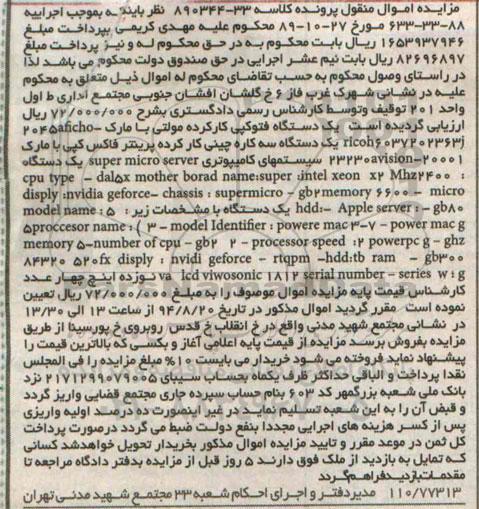 مزایده اموال منقول پرونده کلاسه ۳۳-۸۹۰۳۴۴ نظر باینکه بموجب اجراییه
۸۸-۳۳-۶۳۳ مورخ ۲۷-۱۰-۸۹ محکوم علیه مهدی کریمی بپرداخت مبلغ
۱۶۵۳۹۳۷۹۴۶ ریال بابت محکوم به در حق محکوم له و نیز پرداخت مبلغ
۸۲۶۹۶۸۹۷ ریال بابت نیم عشر اجرایی در حق صندوق دولت محکوم می باشد لذا
در راستای وصول محکوم به حسب تقاضای محکوم له اموال ذیل متعلق به محکوم
علیه در نشانی شهرک غرب فاز ۶ خ گلشان افشان جنوبی مجتمع اداری ط اول
واحد ۲۰۱ توقیف وتوسط کارشناس رسمی دادگستری بشرح ۷۲/۰۰۰/۰۰۰ ریال
ارزیابی گردیده است یک دستگاه فتوکپی کارکرده مولتی با مارک aficho-۲۰۴۵
ricoh۶۰۳۷۲۰۲۳۶۳j یک دستگاه سه کاره چینی کار کرده پرینتر فاکس کپی با مارک
avision-۲۰۰۰۱ ۲۳۲۳۰ سیستمهای کامپیوتری super micro server یک دستگاه
cpu type - dal۵x mother borad name:super :intel xeon x۲ Mhz۲۴۰۰ :
disply :nvidia geforce- chassis : supermicro - gb۲memory ۶۶۰۰ - micro
hdd:- Apple server : - gb۸۰ یک دستگاه با مشخصات زیر : model name : ۵
۵proccesor name : ( ۳ - model Identifier : powere mac ۳-۷ - power mac g
memory ۵-number of cpu - gb۲ ۲ - processor speed :۲ powerpc g - ghz
۸۴۳۲۰ ۵۲۰fx disply : nvidi geforce - rtqpm -hdd:tb ram - gb۳۰۰
va lcd viwosonic ۱۸۱۲ serial number - series w : g نوزده اینچ چهار عدد
کارشناس قیمت پایه مزایده اموال موصوف را به مبلغ ۷۲/۰۰۰/۰۰۰ ریال تعیین
نموده است . مقرر گردید اموال مذکور در تاریخ ۹۴/۸/۲۰ از ساعت ۱۳ الی ۱۳/۳۰
در نشانی مجتمع شهید مدنی واقع در خ انقلاب خ قدس روبروی خ پورسینا از طریق
مزایده بفروش برسد مزایده از قیمت پایه اعلامی آغاز و بکسی که بالاترین قیمت را
پیشنهاد نماید فروخته می شود خریدار می بایست ۱۰% مبلغ مزایده را فی المجلس
نقدا پرداخت و الباقی حداکثر ظرف یکماه بحساب سیبای ۲۱۷۱۲۹۹۰۷۹۰۰۵ نزد
بانک ملی شعبه بزرگمهر کد ۶۰۳ بنام حساب سپرده جاری مجتمع قضایی واریز گردد
و قبض آن را به این شعبه تسلیم نماید در غیر اینصورت ده درصد اولیه واریزی
پس از کسر هزینه های اجرایی مجددا بنفع دولت ضبط می گردد درصورت پرداخت
کل ثمن در موعد مقرر و تایید مزایده اموال مذکور بخریدار تحویل خواهدشد کسانی
که تمایل به بازدید از ملک فوق دارند ۵ روز قبل از مزایده بدفتر دادگاه مراجعه تا
مقدمات بازدید فراهم گردد
۱۱۰/۷۷۳۱۳ مدیردفتر و اجرای احکام شعبه ۳۳ مجتمع شهید مدنی تهران